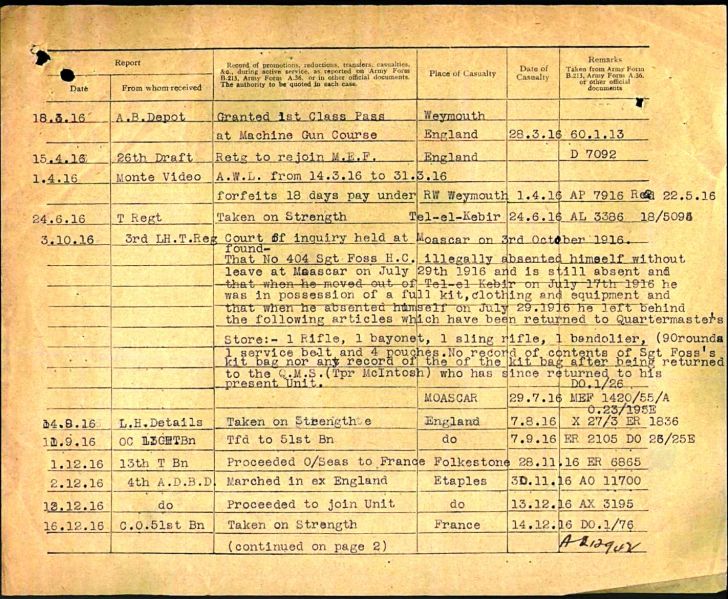 Report
Record of promotions, reductions, transfers, casualties,
&c., during active service, as reported on Army Form
B.213, Army Form A.36, or in other official documents.
The authority to be quoted in each case.
Place of Casualty
Date of
Casualty
Remarks
Taken from Army Form
B.213, Army Form A.36,
or other official
documents
Date From whom received
18.3.16 A.B.Depot Granted 1st Class Pass Weymouth
at Machine Gun Course England 28.3.16 60.1.13
15.4.16 26th Draft Retg to rejoin M.E.F. England D 7092
1.4.16 Monte Video A.W.L. from 14.3.16 to 31.3.16
forfeits 18 days pay under RW Weymouth 1.4.16 AP 7916 22.5.16
24.6.16 T Regt Taken on Strength Tel-el-Kebir 24.6.16 AL 3386 18/5095
3.10.16 3rd LH.T.Reg Court of inquiry held at Moascar on 3rd October 1916.
found-
That No 404 Sgt Foss H.C. illegally absented himself without
leave at Moascar on July 29th 1916 and is still absent and
that when he moved out of Tel-el Kebir on July 17th 1916 he
was in possession of a full kit,clothing and equipment and
that when he absented himself on July 29.1916 he left behind
the following articles which have been returned to Quartermasters
Store:- 1 Rifle, 1 bayonet, 1 sling rifle, 1 bandolier, (90rounds
1 service belt and 4 pouches.No record of contents of Sgt Foss's
kit bag nor any record of the of the kit bag after being returned
to the Q.M.S.(Tpr McIntosh) who has since returned to his
present Unit. DO.1/26
MOASCAR 29.7.16 MEF 1420/55/A
O.23/195E
14.8.16 L.H.Details Taken on Strength England 7.8.16 X 27/3 ER 1836
11.9.16 OC Tfd to 51st Bn do 7.9.16 ER 2105 DO 25/25E
1.12.16 13th T Bn Proceeded O/Seas to France Folkestone 28.11.16 ER 6865
2.12.16 4th A.D.B.D. Marched in ex England Etaples 30.11.16 AO 11700
13.12.16 do Proceeded to join Unit do 13.12.16 AX 3195
16.12.16 C.O.51st Bn Taken on Strength France 14.12.16 DO.1/76
(continued on page 2)